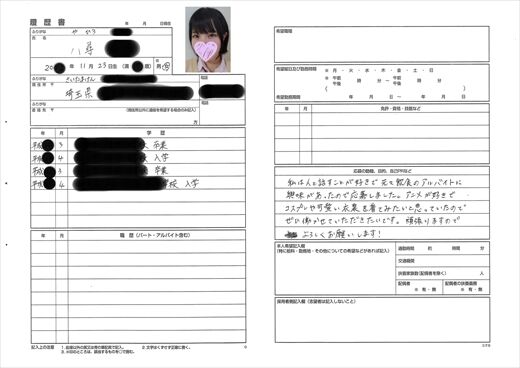 履歴書
年 月 日現在
ふりがな
や
氏名
八尋
年 11月 23日生 (満 歳) 男・女
ふりがな
さいたまけん
電話
現住所 〒
埼玉県
ふりがな
電話
連絡先 〒
(現住所以外に連絡を希望する場合のみ記入)
方
年 月 学歴
平成 3 卒業
平成 4 入学
平成 3 卒業
平成 4 学校 入学
年 月 職歴 (パート・アルバイト含む)
記入上の注意
希望職種
希望曜日及び勤務時間
・月・火・水・木・金・土・日
午前 午後 時 分 〜 午前 午後 時 分
希望勤務期間
年 月 日〜 年 月 日
年 月 免許・資格・技能など
応募の動機、目的、自己PRなど
私は人と話すことが好きで元々飲食のアルバイトに
興味があったので応募しました。アニメが好きで
コスプレや可愛い衣装を着てみたいと思っていたので
ぜひ働かせていただきたいです。頑張りますので
よろしくお願いします!
本人希望記入欄
(特に給料・勤務地・その他についての希望などがあれば記入)
通勤時間 約 時間 分
交通機関
扶養家族数(配偶者を除く) 人
配偶者
※有・無
配偶者の扶養義務
※有・無
採用者側記入欄(志望者は記入しないこと)